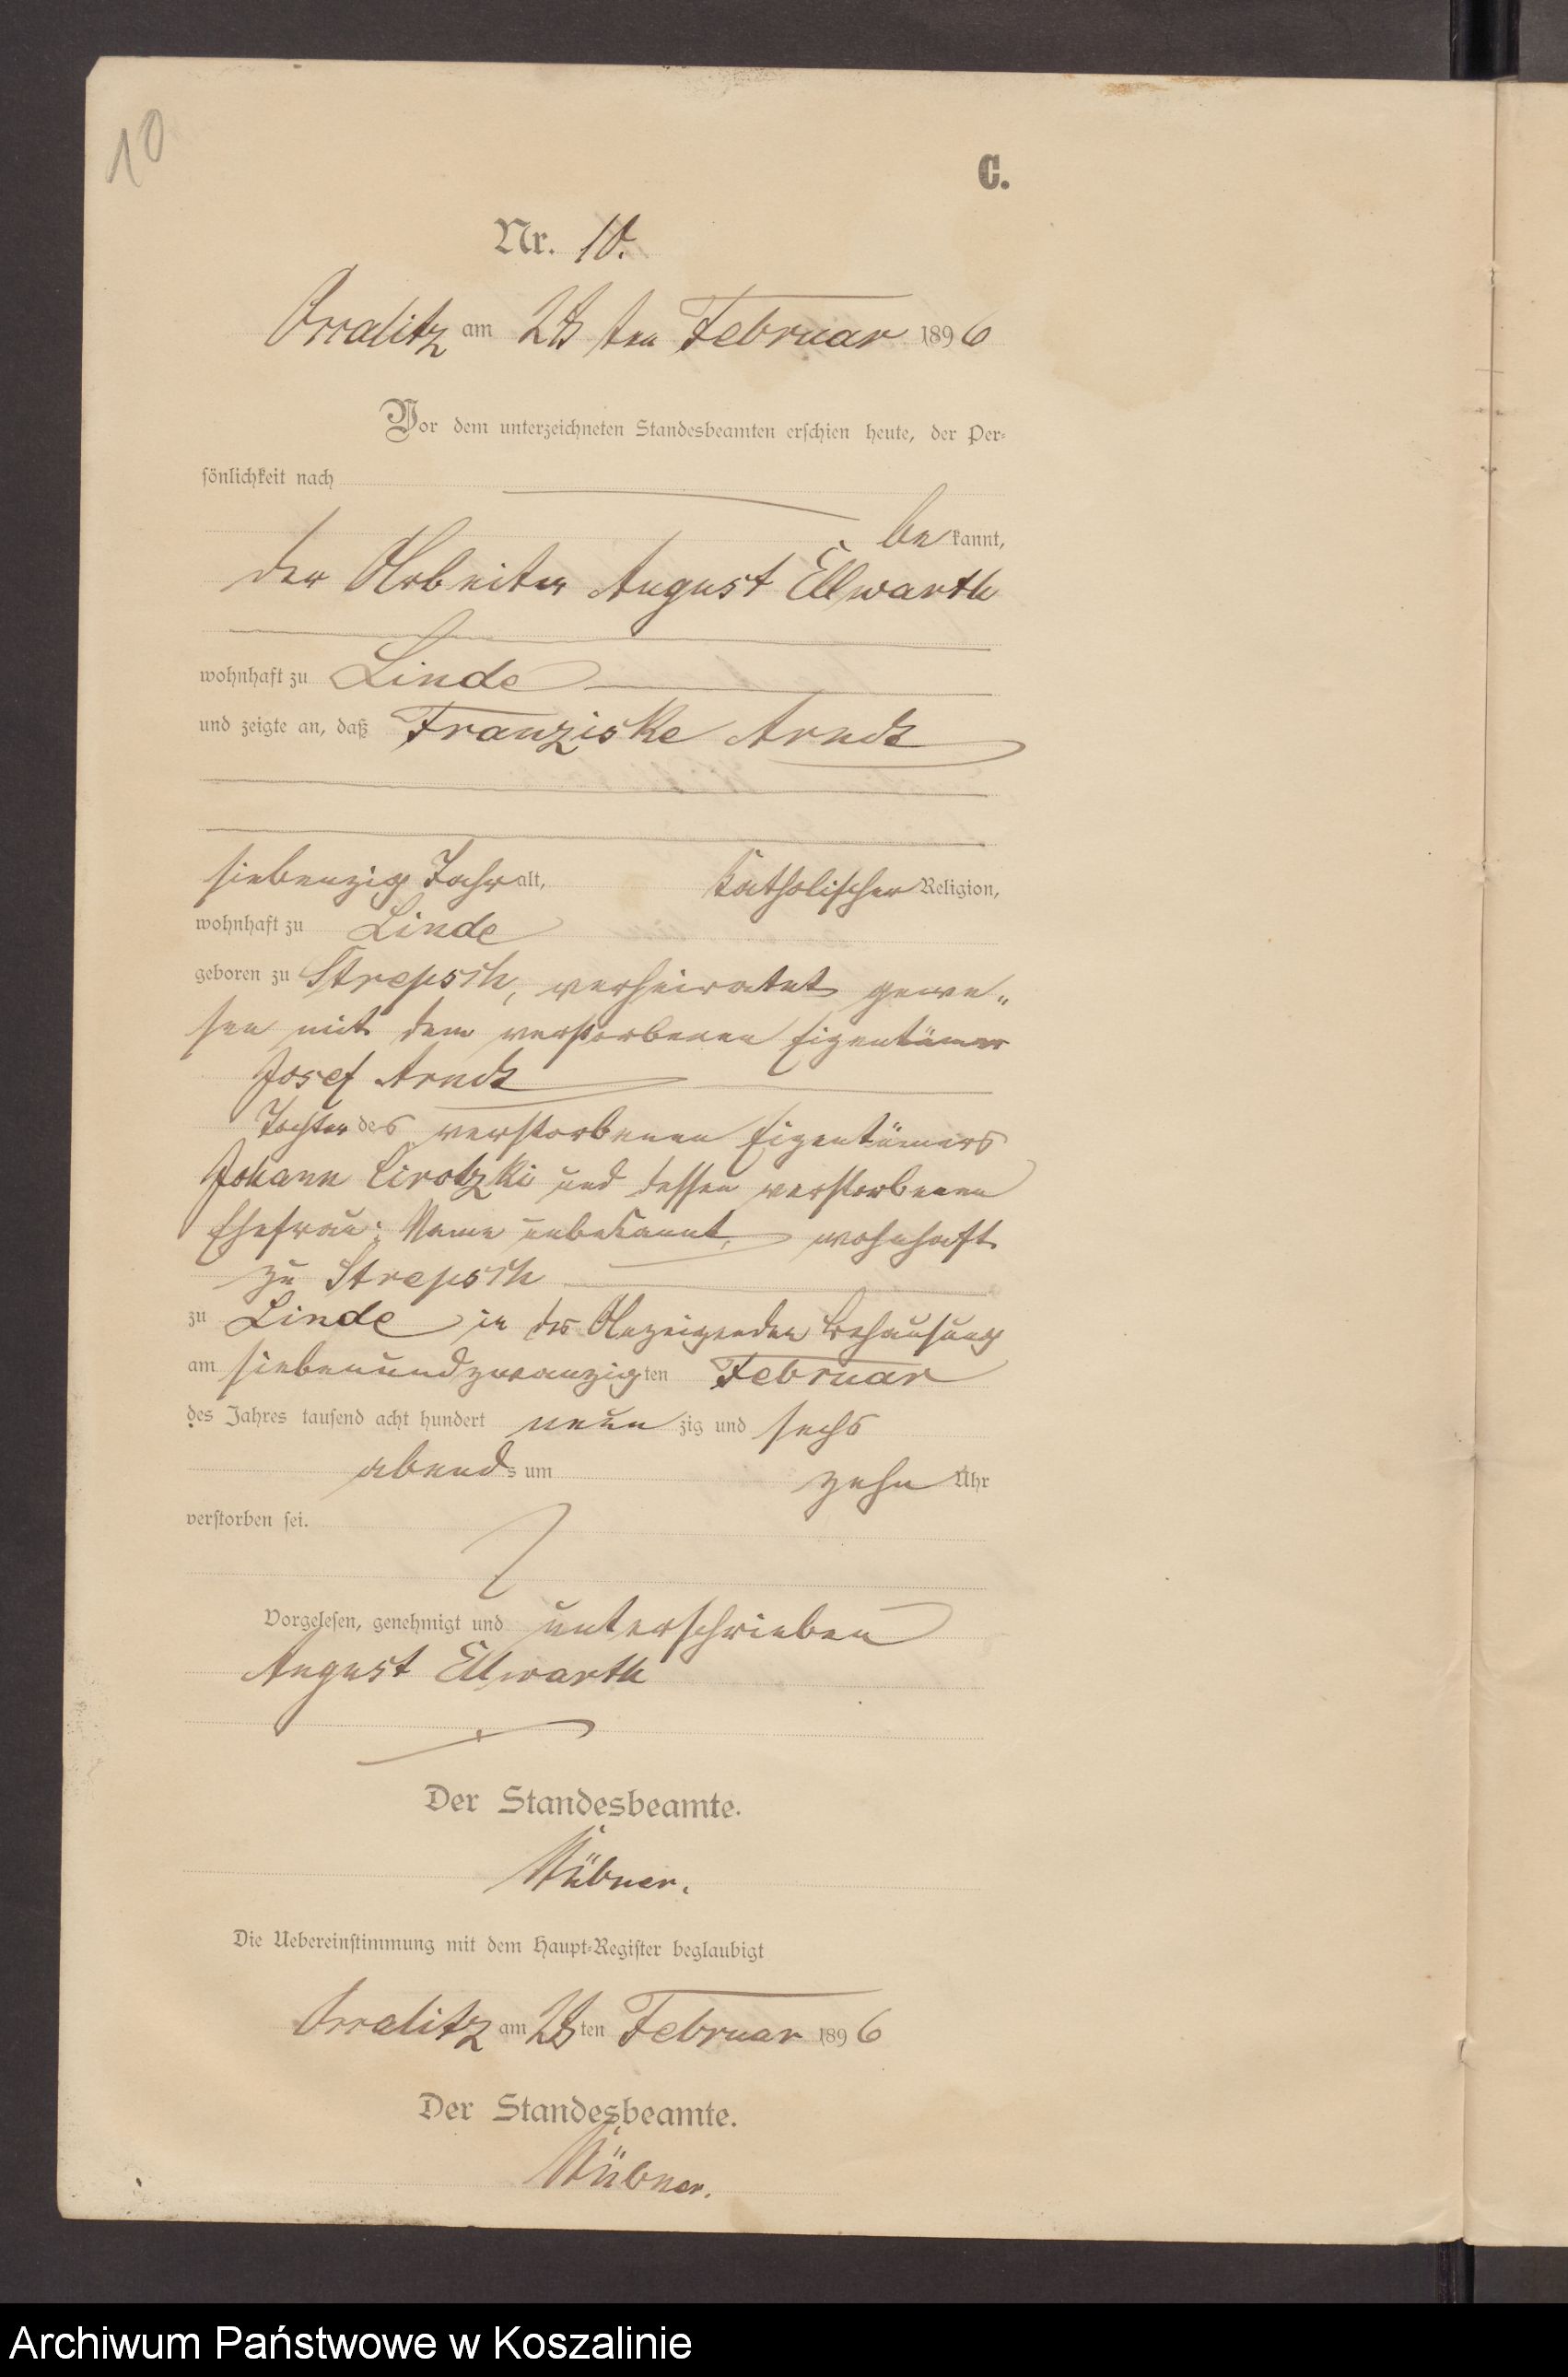 10
C.
Nr. 10.
am 28 ten Februar 1896
Vor dem unterzeichneten Standesbeamten erschien heute, der Per-
sönlichkeit nach
bekannt,
der Arbeiter August Ellwarth
wohnhaft zu Linde
und zeigte an, daß Franziske Arndt
siebenzig Jahr alt, katholischer Religion,
wohnhaft zu Linde
geboren zu Strepsch, verheiratet gewe-
sen mit dem verstorbenen Eigentümer
Josef Arndt
Tochter des verstorbenen Eigentümers
Johann und dessen verstorbenen
Ehefrau; Name unbekannt, wohnhaft
zu Strepsch
zu Linde in des Anzeigenden Behausung
am siebenundzwanzigten Februar
des Jahres tausend acht hundert neunzig und sechs
abends um zehn Uhr
verstorben sei.
Vorgelesen, genehmigt und unterschrieben
August Ellwarth
Der Standesbeamte.
Die Uebereinstimmung mit dem Haupt-Register beglaubigt
am 28ten Februar 1896
Der Standesbeamte.
Archiwum Państwowe w Koszalinie